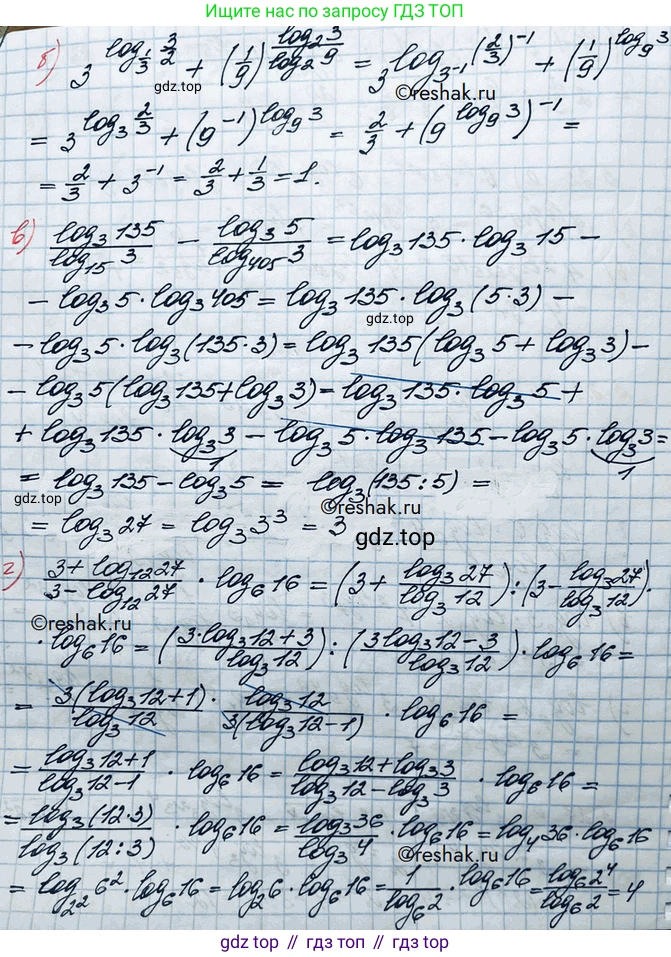 больше решебников по запросу ГДЗ ТОП
б) 3^(log_(1/3) 3/2) + (1/9)^(log_2 3 / log_2 9) = 3^(log_(3^-1) (2/3)^-1) + (1/9)^(log_9 3)
gdz.top
©reshak.ru
= 3^(log_3 2/3) + (9^-1)^(log_9 3) = 2/3 + (9^(log_9 3))^-1 =
= 2/3 + 3^-1 = 2/3 + 1/3 = 1.
в) log_3 135 / log_15 3 - log_3 5 / log_405 3 = log_3 135 · log_3 15 -
- log_3 5 · log_3 405 = log_3 135 · log_3 (5·3) -
gdz.top
- log_3 5 · log_3 (135·3) = log_3 135 (log_3 5 + log_3 3) -
- log_3 5 (log_3 135 + log_3 3) = log_3 135 · log_3 5 +
+ log_3 135 · log_3 3 - log_3 5 · log_3 135 - log_3 5 · log_3 3 =
1 1
= log_3 135 - log_3 5 = log_3 (135:5) =
©reshak.ru
= log_3 27 = log_3 3^3 = 3
gdz.top
г) (3 + log_12 27)/(3 - log_12 27) · log_6 16 = (3 + log_3 27 / log_3 12) : (3 - log_3 27 / log_3 12) ·
©reshak.ru
· log_6 16 = ((3·log_3 12 + 3)/log_3 12) : ((3 log_3 12 - 3)/log_3 12) · log_6 16 =
= 3(log_3 12 + 1)/log_3 12 · log_3 12/3(log_3 12 - 1) · log_6 16 =
= (log_3 12 + 1)/(log_3 12 - 1) · log_6 16 = (log_3 12 + log_3 3)/(log_3 12 - log_3 3) · log_6 16 =
= log_3 (12·3)/log_3 (12:3) · log_6 16 = log_3 36/log_3 4 · log_6 16 = log_4 36 · log_6 16
©reshak.ru
= log_(2^2) 6^2 · log_6 16 = log_2 6 · log_6 16 = 1/log_6 2 · log_6 16 = log_6 2^4/log_6 2 = 4
gdz.top // гдз.топ // gdz.top